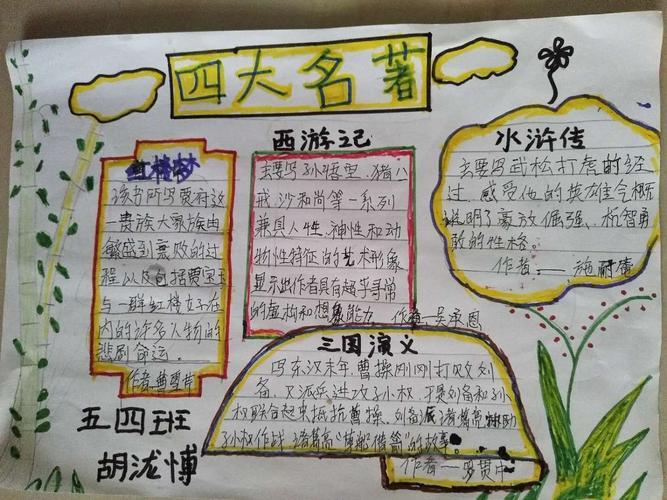 四大名著
红楼梦
该书所写贾府这
一贵族大家族由
繁盛到衰败的过
程以及包括贾宝玉
与一群红楼女子在
内的许多人物的
悲剧命运。
作者曹雪芹
西游记
主要写孙悟空、猪八
戒、沙和尚等一系列
兼具人性、神性和动
物性特征的艺术形象
显示出作者具有超乎寻常
的虚构和想象能力
作者—吴承恩
水浒传
主要写武松打虎的经
过,感受他的英雄气概
说明了豪放倔强、机智勇
敢的性格。
作者——施耐庵
三国演义
写东汉末年曹操刚刚打败刘
备,又派兵进攻孙权,于是刘备和孙
权联合起来抵抗曹操。刘备派诸葛亮
孙权作战 诸葛亮“草船借箭”的故事。
作者—罗贯中
五四班
胡泷博